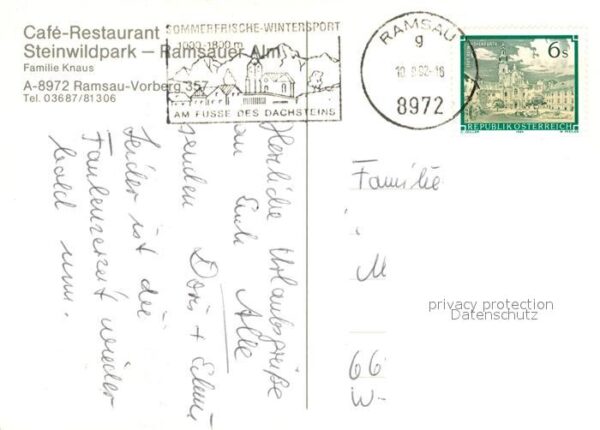 Café-Restaurant
Steinwildpark — Ramsauer Alm
Familie Knaus
A-8972 Ramsau-Vorberg 357
Tel. 03687/81306
SOMMERFRISCHE-WINTERSPORT
1000-1800 m
AM FUSSE DES DACHSTEINS
RAMSAU
g
8972
6s
REPUBLIK ÖSTERREICH
Herzliche Urlaubsgrüße
an Euch Alle
senden Doris +
Leider ist die
Faulenzerzeit wieder
bald um.
Familie
M
66
W-
privacy protection
Datenschutz